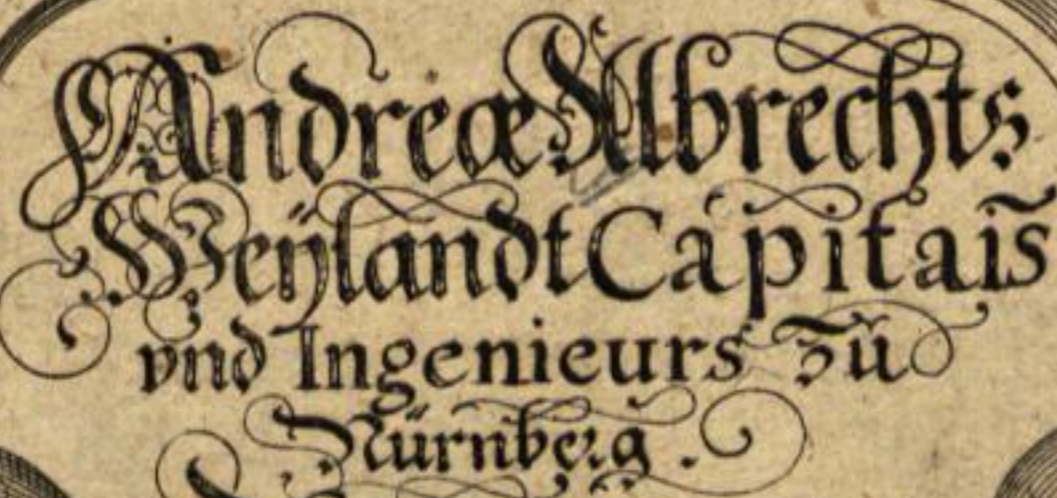 Andreæ Albrechts
Weÿlandt Capitais̃
vnd Ingenieurs zŭ
Nürnberg.